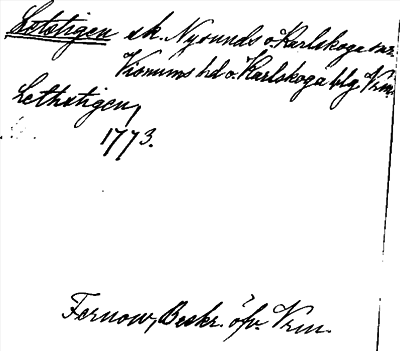 Letstigen sk. Nysunds o. Karlskoga snr
Visnums hd o. Karlskoga blg Vrm.
Lethstigen,
1773.
Fernow, Beskr. öfv. Vrm.